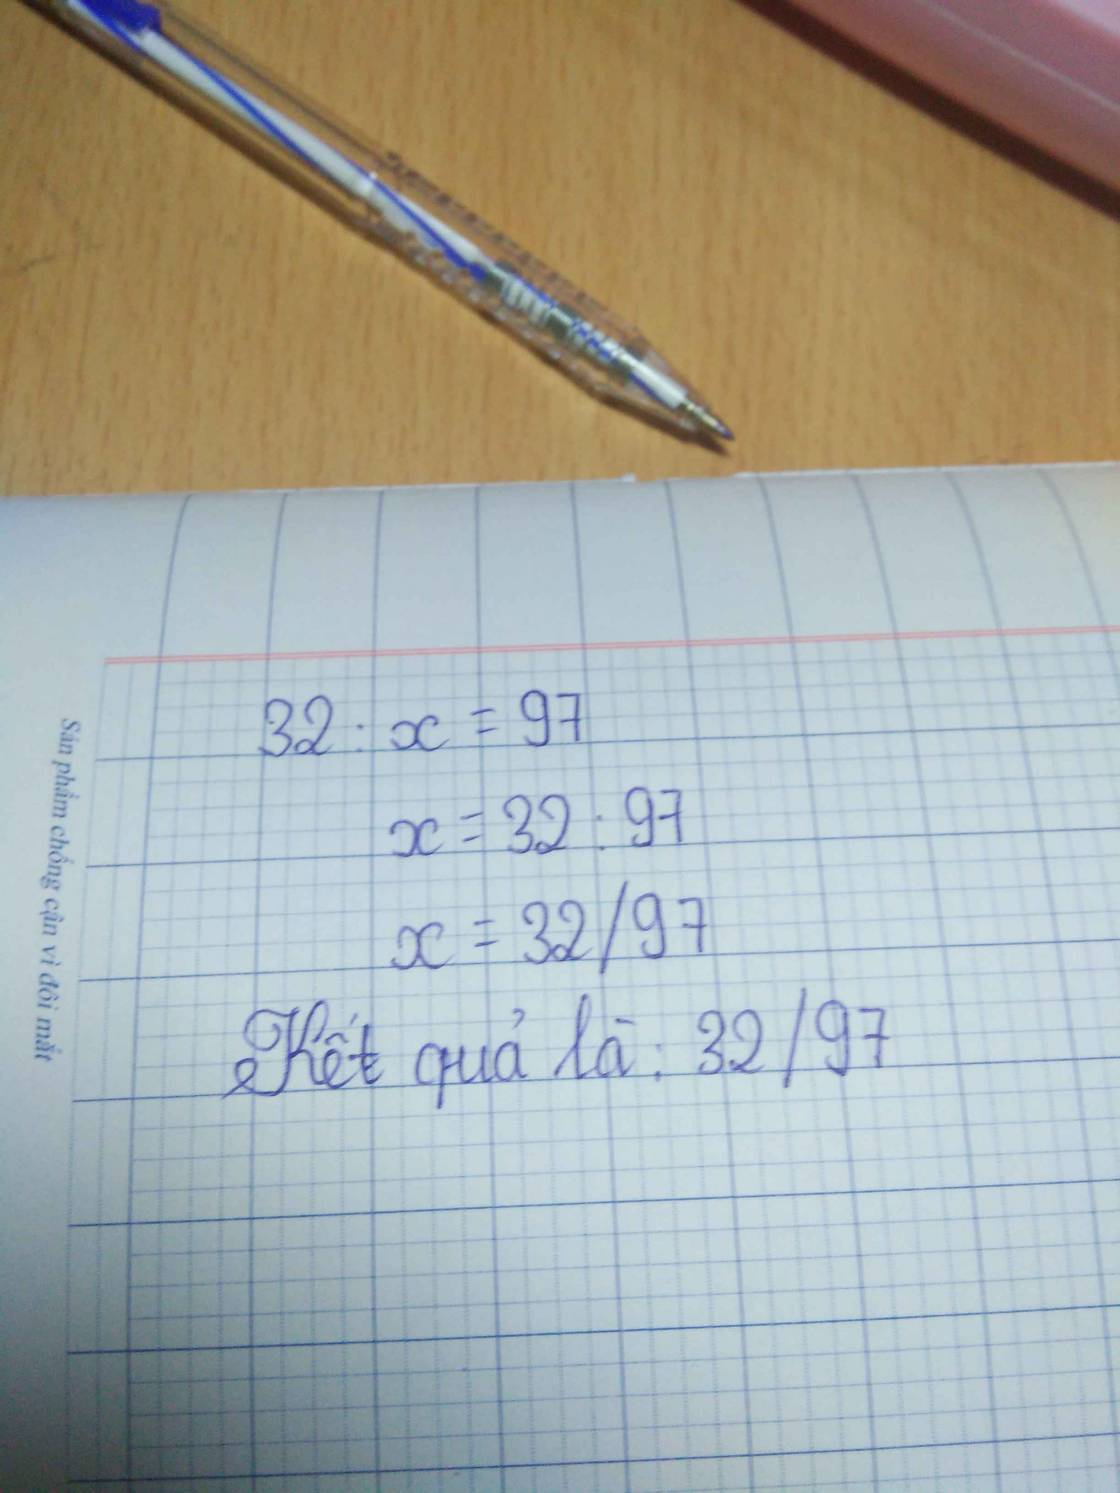 32 : x = 97
x = 32 : 97
x = 32/97
Kết quả là : 32/97
Sản phẩm chống cận vì đôi mắt